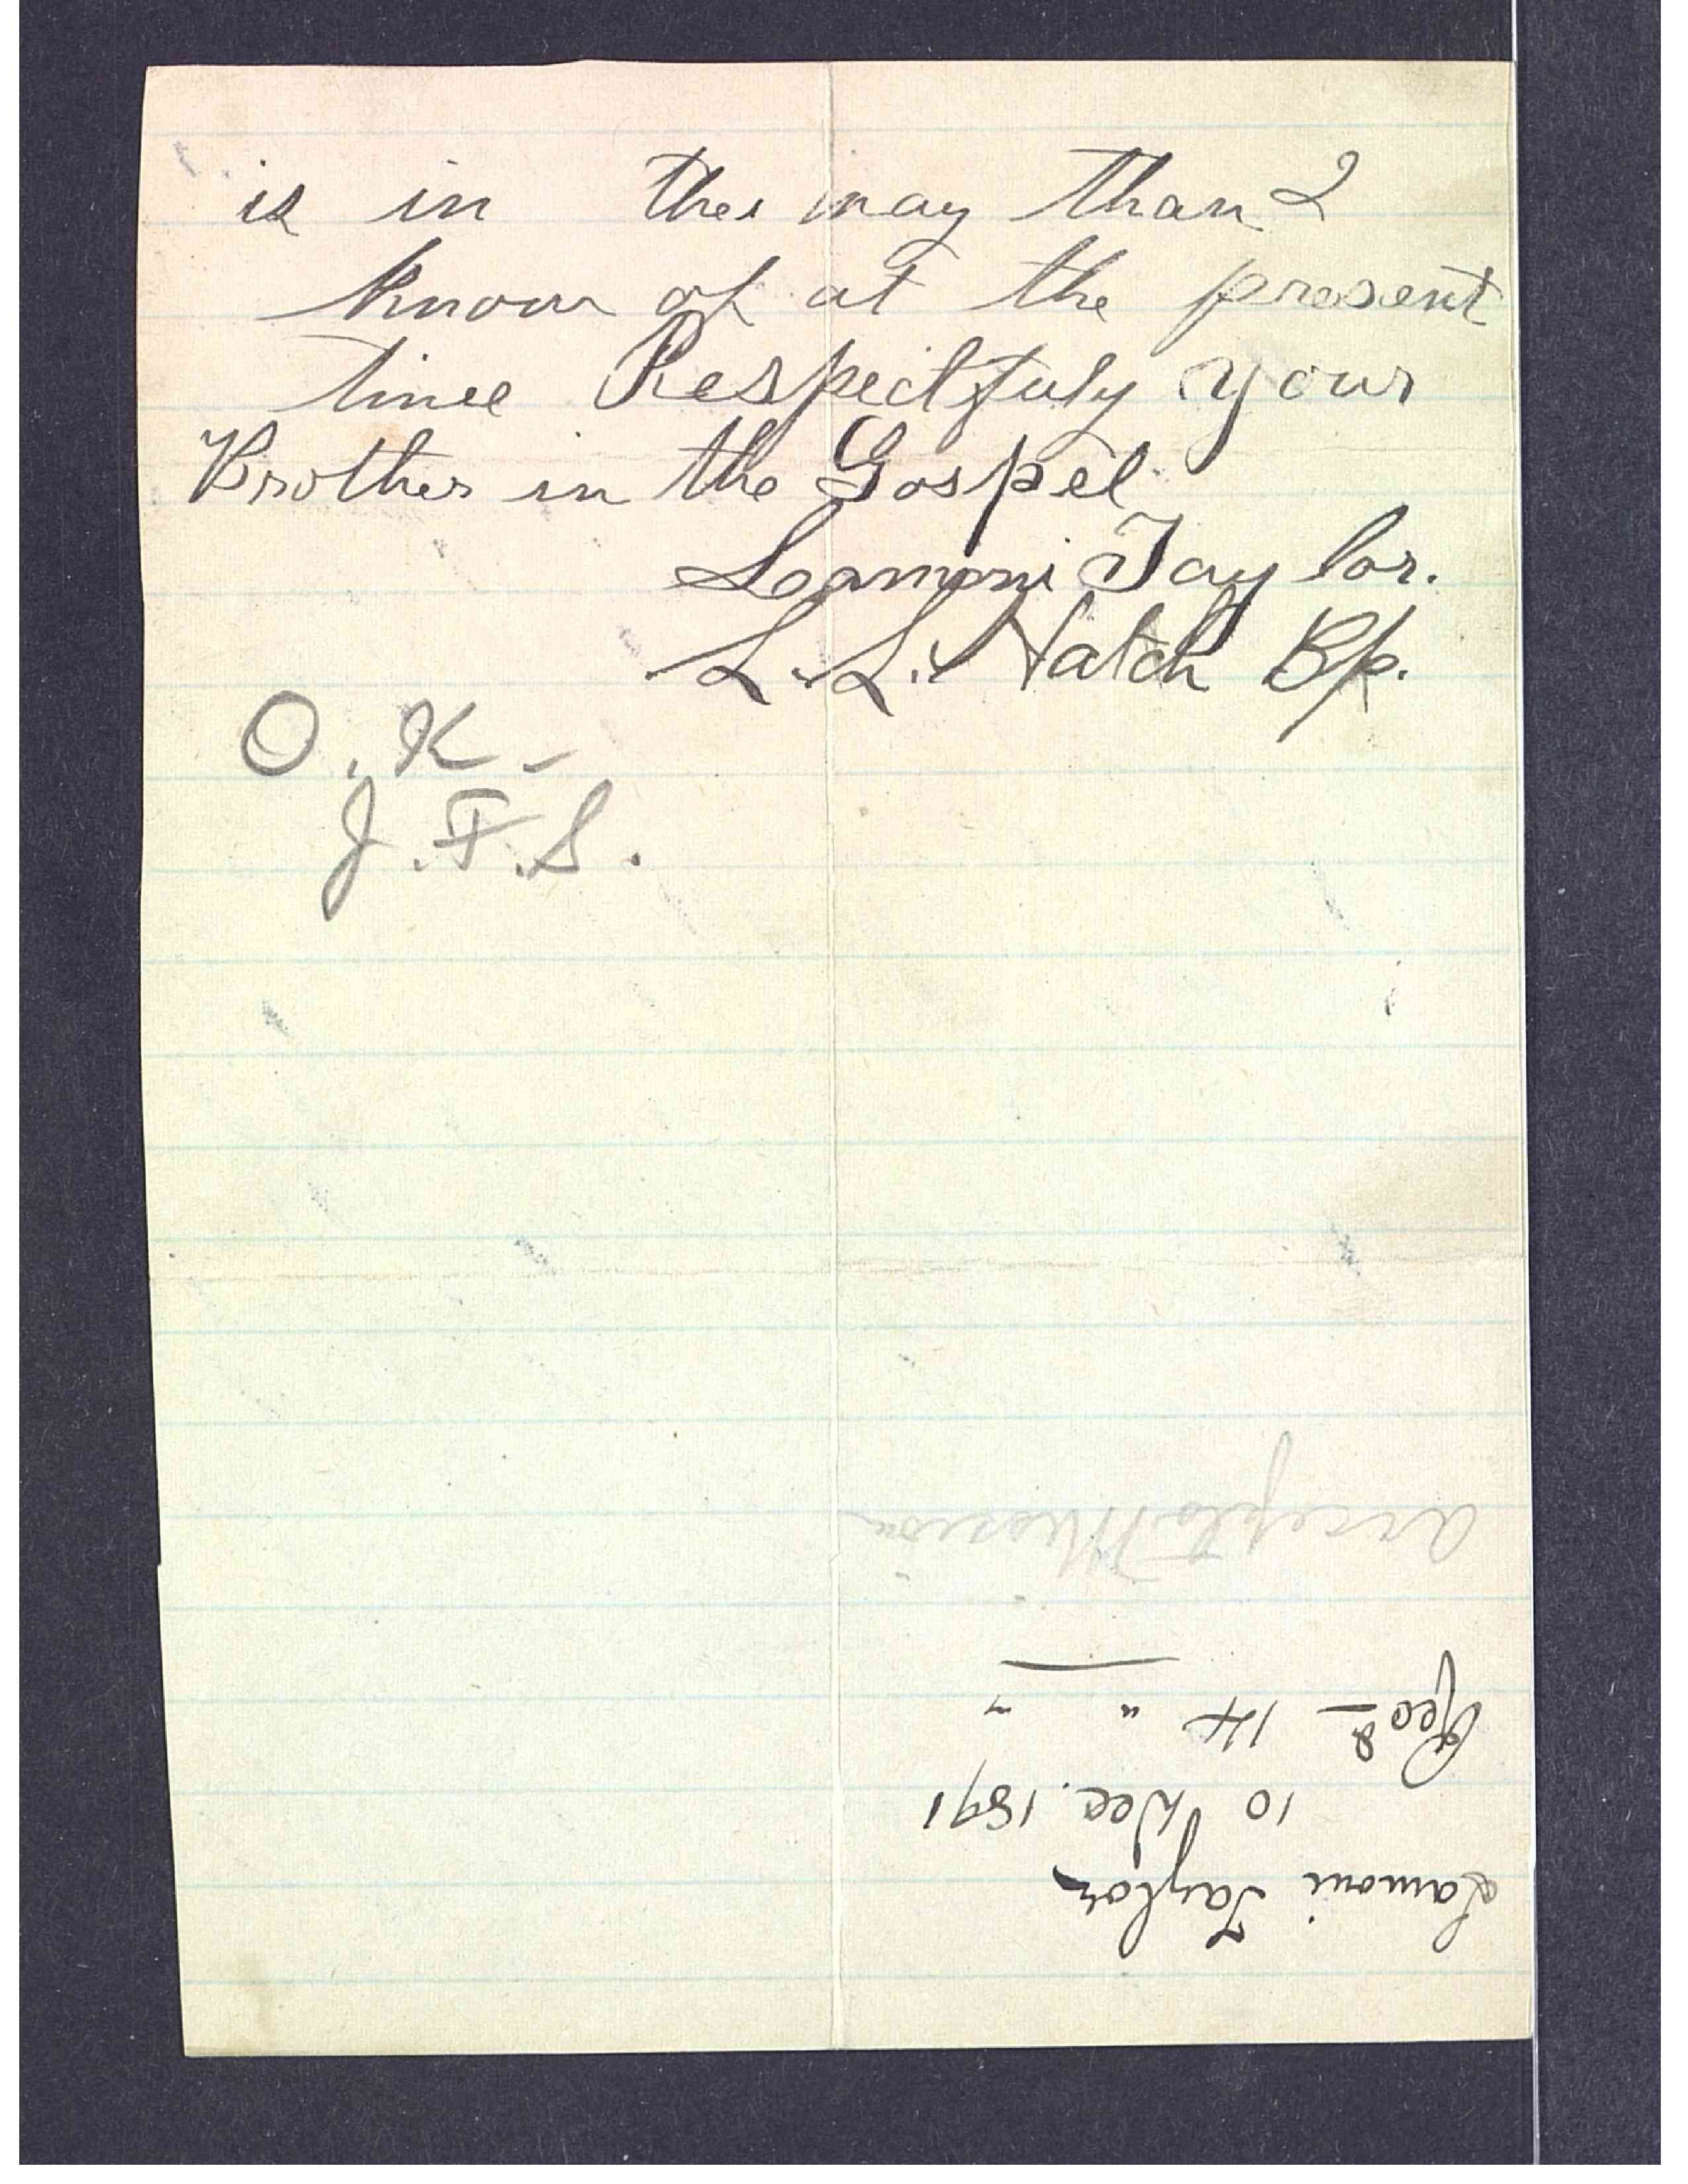 is in the way than I
know of at the present
time Respectfuly your
Brother in the Gospel
Lamoni Taylor.
L. L. Hatch Bp.
O. K -
J. F. S.
Lamoni Taylor
10 Dec. 1891
Recd - 14 " "
accepts Mission